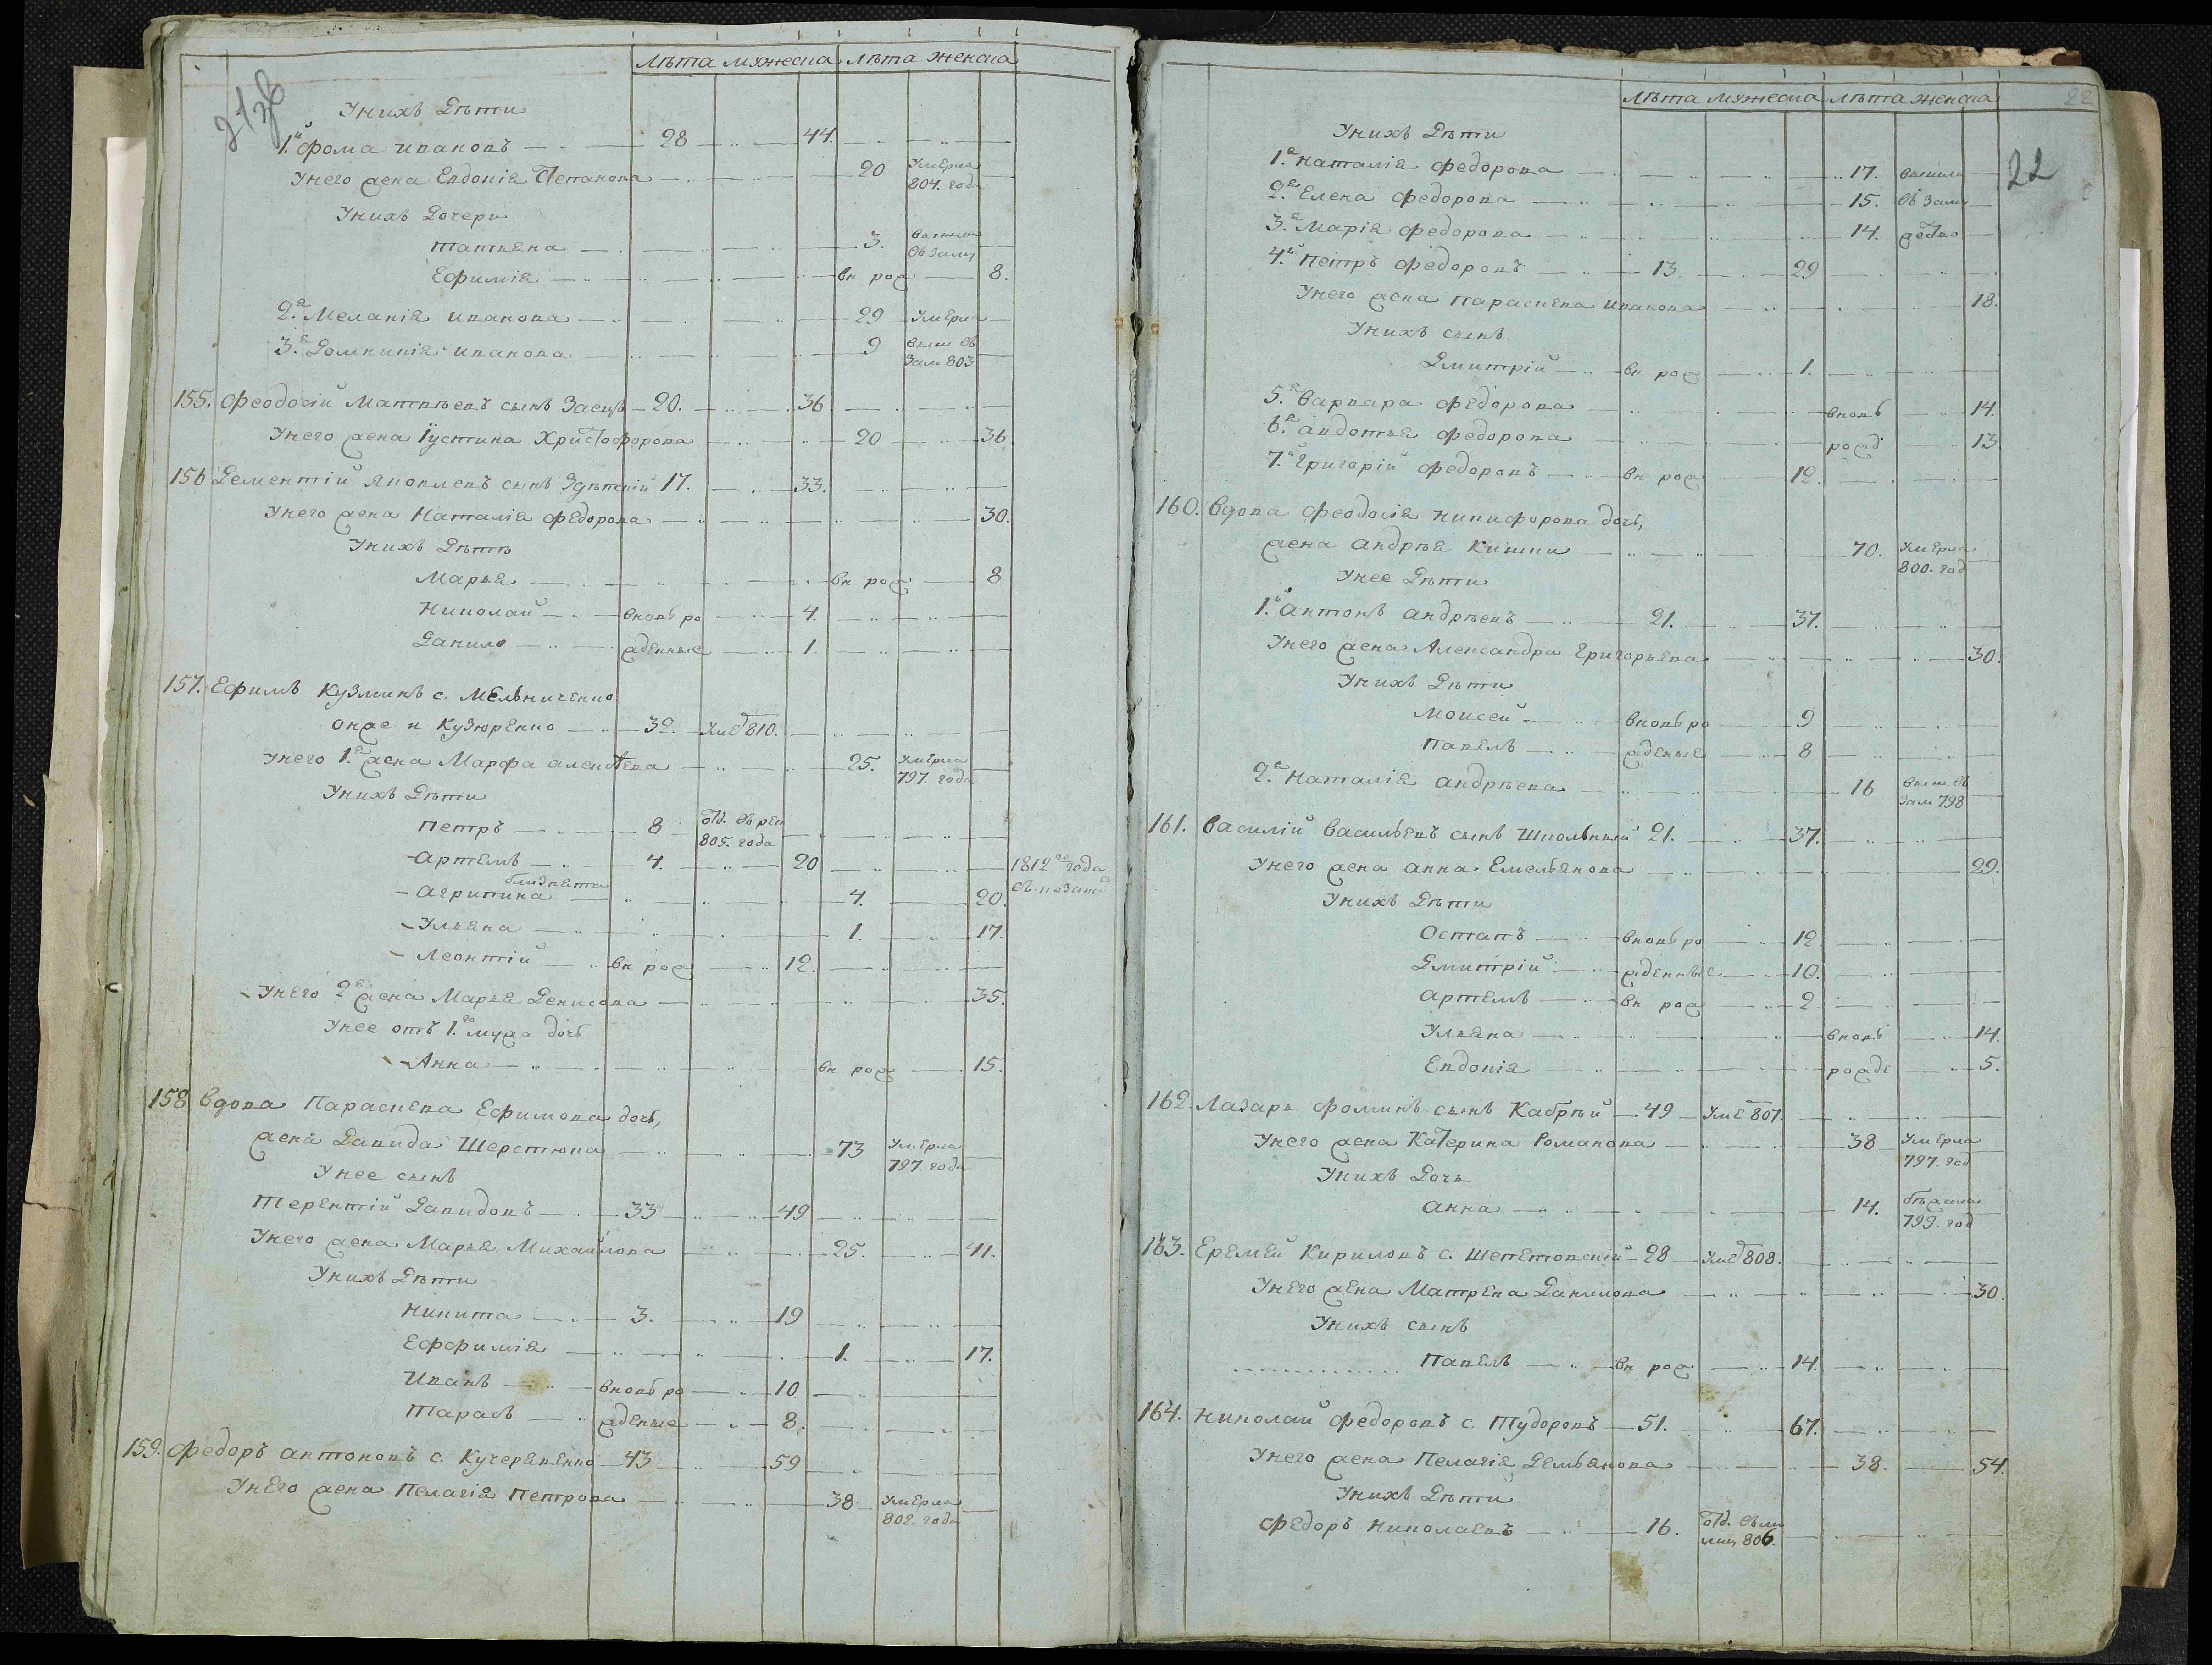 лѣта мужеска лѣта женска
21 зв
У них Дѣти
1.й Фома Иванов 28 44.
У него жена Евдокія Степанова 20 умерла 804. года
У них Дочери
Татьяна 3. вышла в зам
Ефимія вн рож 8.
2.я Меланія Иванова 29 умерла
3.я Домникія Иванова 9 выш в зам 803
155. Феодосій Матвѣев сын Заец 20. 36.
У него жена Іустина Христофорова 20 36
156 Дементій Яковлев сын 17. 33.
У него жена Наталія Федорова 30.
У них Дѣти
Марья вн рож 8
Николай вновь ро 4.
Данило жденные 1.
157. Ефим Кузмин с. Мельниченко
он же и Кузюренко 32. Уме 810.
У него 1.я жена Марфа Алексѣева 25. умерла 797. года
У них Дѣти
Петръ 8 отд. в рек 805. года
Артем 4. 20 1812го года
близнята
Агрипина 4. 20.
Ульяна 1. 17.
Леонтій вн рож 12.
У него 2я жена Марья Денисова 35.
У нее отъ 1.го мужа дочь
Анна вн рож 15.
158 Вдова Параскева Ефимова дочь,
жена Давида Шерстюка 73 умерла 797. года
У нее сын
Терентій Давидов 33 49
У него жена Марья Михайлова 25. 41.
У них Дѣти
Никита 3. 19
Ефимія 1. 17.
Иван вновь ро 10
Тарас жденые 8.
159. Федоръ Антонов с. Кучерявенко 43 59
У него жена Пелагія Петрова 38 умерла 802. года
лѣта мужеска лѣта женска 22
22
У них Дѣти
1.я Наталія Федорова 17. вышли
2.я Елена Федорова 15. в зам
3.я Марія Федорова 14. жество
4.й Петръ Федоров 13. 29
У него жена Параскева Иванова 18.
У них сын
Дмитрій вн рож 1.
5.я Варвара Федорова вновь 14.
6.я Авдотья Федорова рожд 13
7.й Григорій Федоров вн рож 12.
160. Вдова Феодосія Никифорова дочь,
жена Андрѣя Кишки 70. умерла 800. год
У нее Дѣти
1.й Антон Андрѣев 21. 37.
У него жена Александра Григорьева 30.
У них Дѣти
Моисей вновь ро 9
Павел жденые 8
2.я Наталія Андрѣева 16 выш в зам 798
161. Василій Васильев сын Школьный 21. 37.
У него жена Анна Емельянова 29.
У них Дѣти
Остап вновь ро 12
Дмитрій жденные 10.
Артем вн рож 2
Ульяна вновь 14.
Евдокія рожде 5.
162. Лазарь Фомин сын Кабрѣй 49 Уме 801.
У него жена Катерина Романова 38 умерла 797. год
У них Дочь
Анна 14. бѣжала 799. год
163. Еремѣй Кирилов с. Шепетовскій 28 Уме 808.
У него жена Матрена Данилова 30.
У них сын
Павел вн рож 14.
164. Николай Федоров с. Тудоров 51. 67.
У него жена Пелагія Демьянова 38. 54.
У них Дѣти
Федоръ Николаев 16. отд. в ми лиц 806.